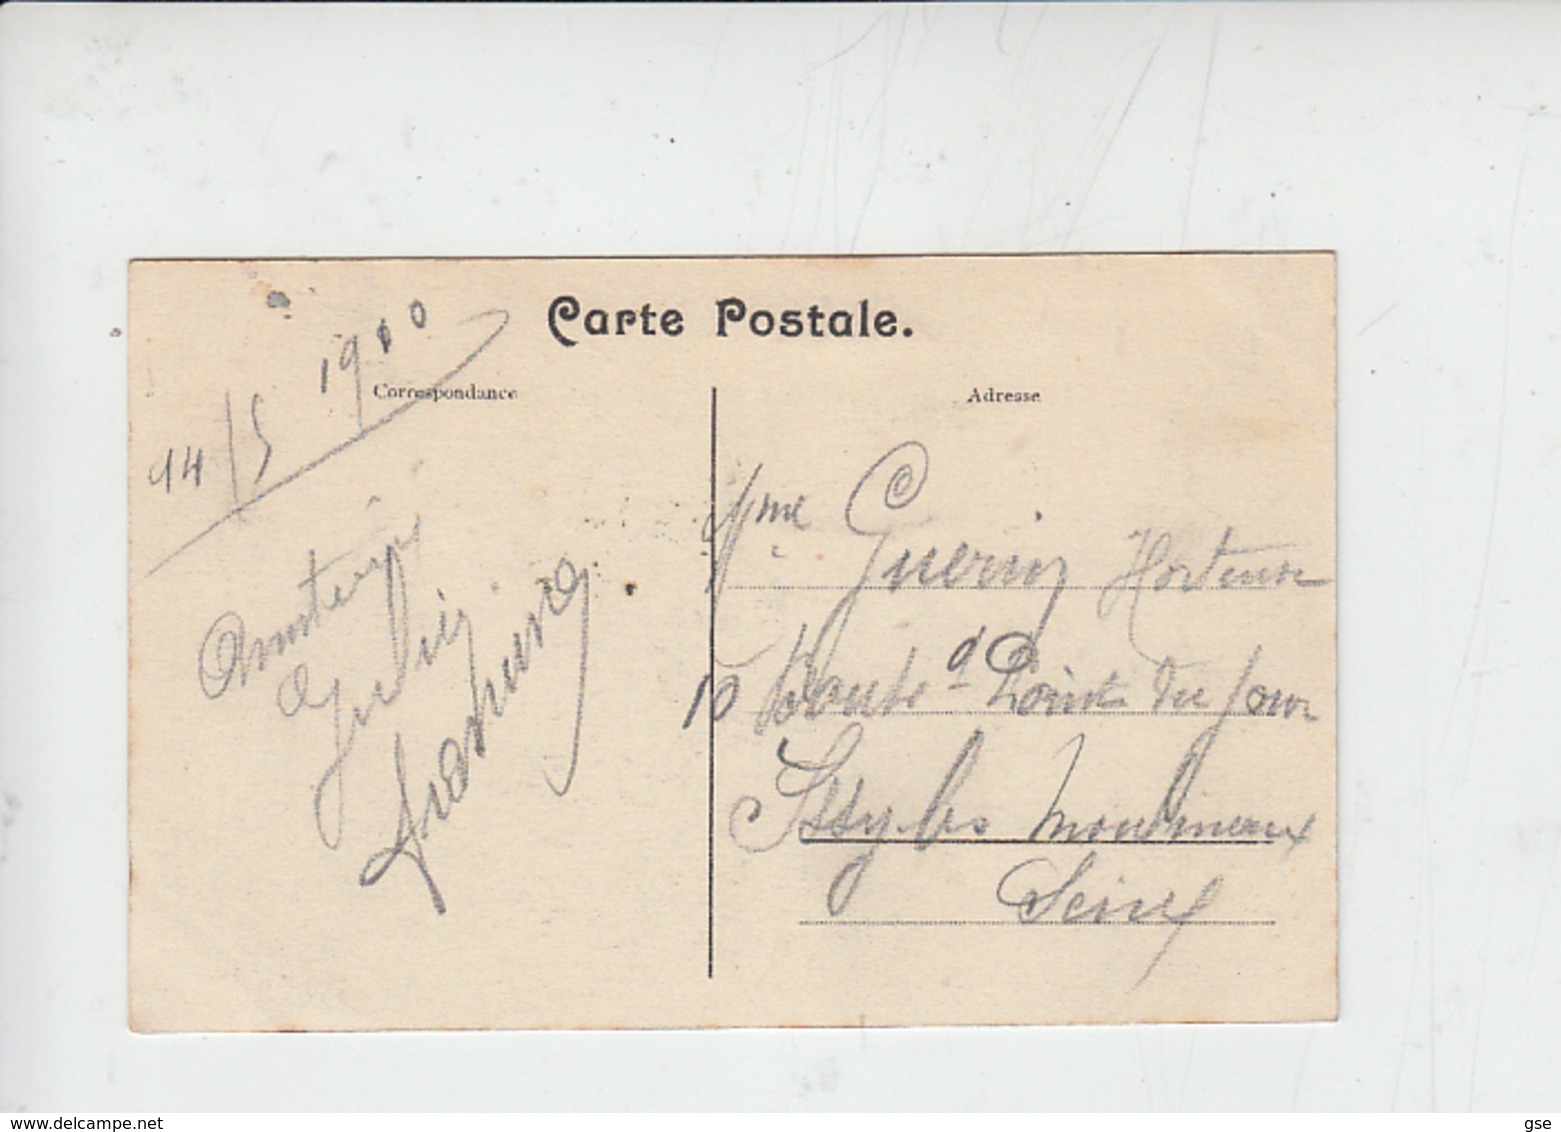 Carte Postale.
Correspondance
Adresse
14/5 1910
Amitiés
Julie
Mme Guerin Hortense
10 Route d Point du Jour
Issy les Moulineaux
Seine
www.delcampe.net
gse